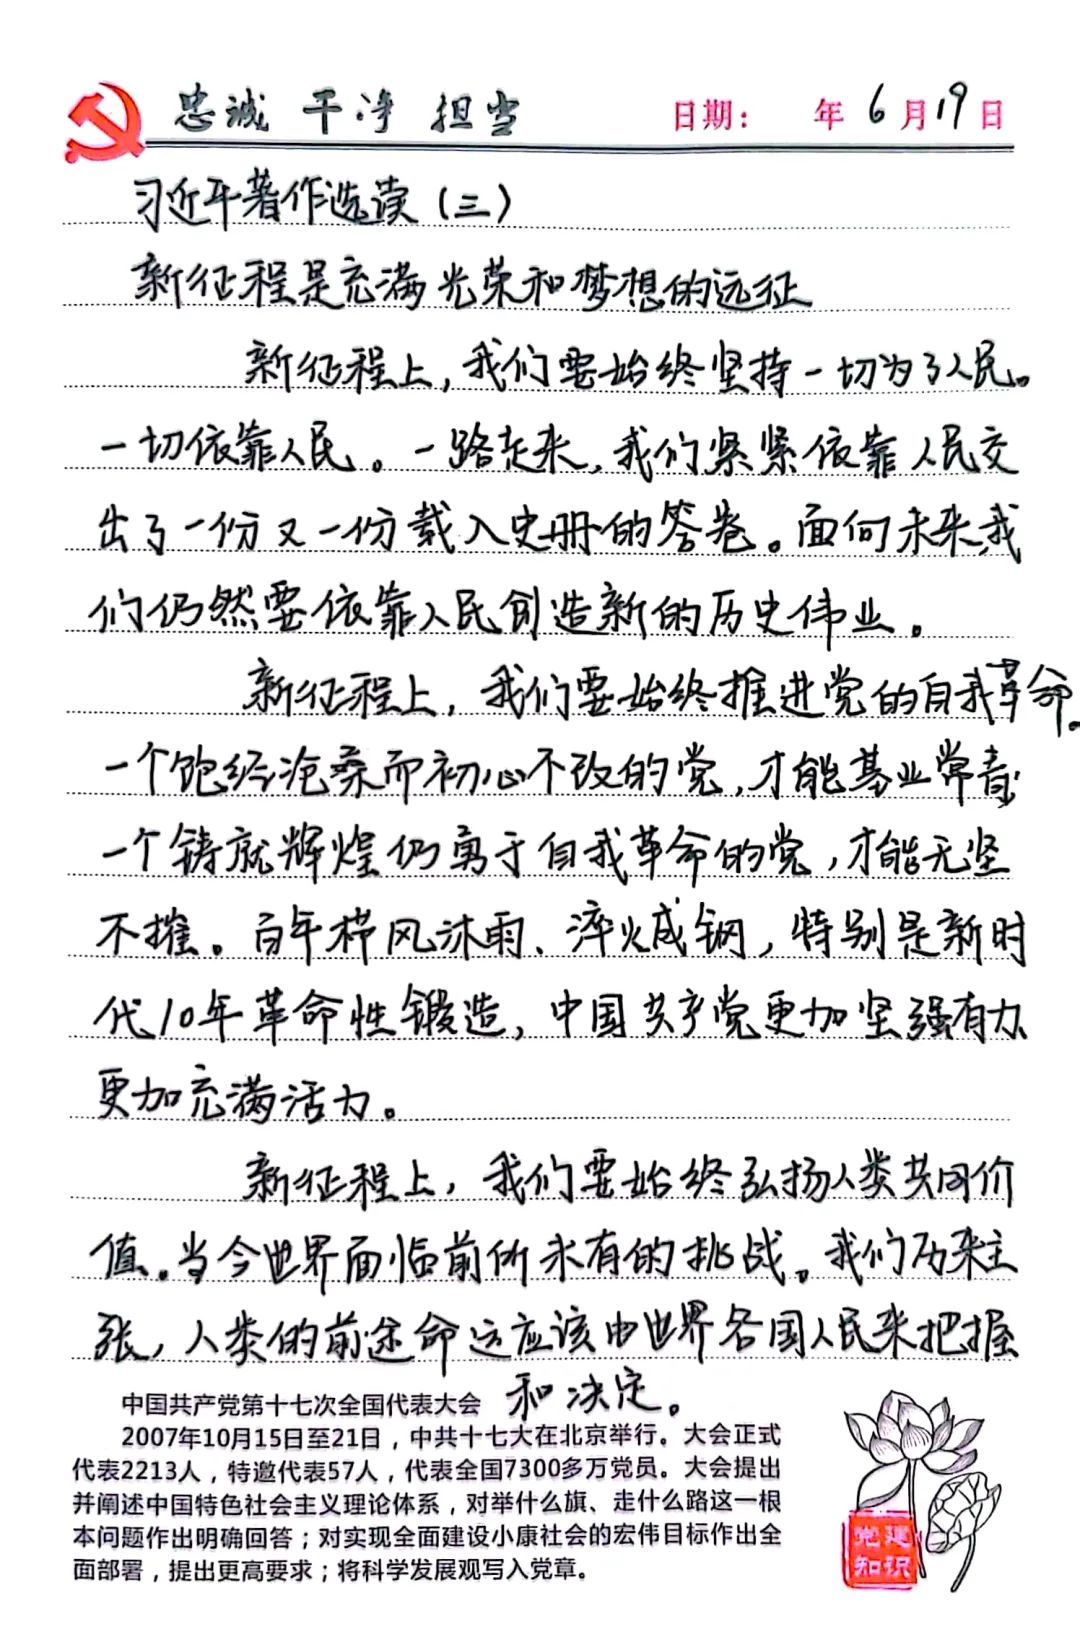 忠诚 干净 担当 日期： 年6月19日
习近平著作选读（三）
新征程是充满光荣和梦想的远征
新征程上，我们要始终坚持一切为了人民。
一切依靠人民。一路走来，我们紧紧依靠人民交
出了一份又一份载入史册的答卷。面向未来，我
们仍然要依靠人民创造新的历史伟业。
新征程上，我们要始终推进党的自我革命。
一个饱经沧桑而初心不改的党，才能基业常青；
一个铸就辉煌仍勇于自我革命的党，才能无坚
不摧。百年栉风沐雨、淬火成钢，特别是新时
代10年革命性锻造，中国共产党更加坚强有力、
更加充满活力。
新征程上，我们要始终弘扬人类共同价
值。当今世界面临前所未有的挑战。我们历来主
张，人类的前途命运应该由世界各国人民来把握
和决定。
中国共产党第十七次全国代表大会
2007年10月15日至21日，中共十七大在北京举行。大会正式
代表2213人，特邀代表57人，代表全国7300多万党员。大会提出
并阐述中国特色社会主义理论体系，对举什么旗、走什么路这一根
本问题作出明确回答；对实现全面建设小康社会的宏伟目标作出全
面部署，提出更高要求；将科学发展观写入党章。
党建
知识